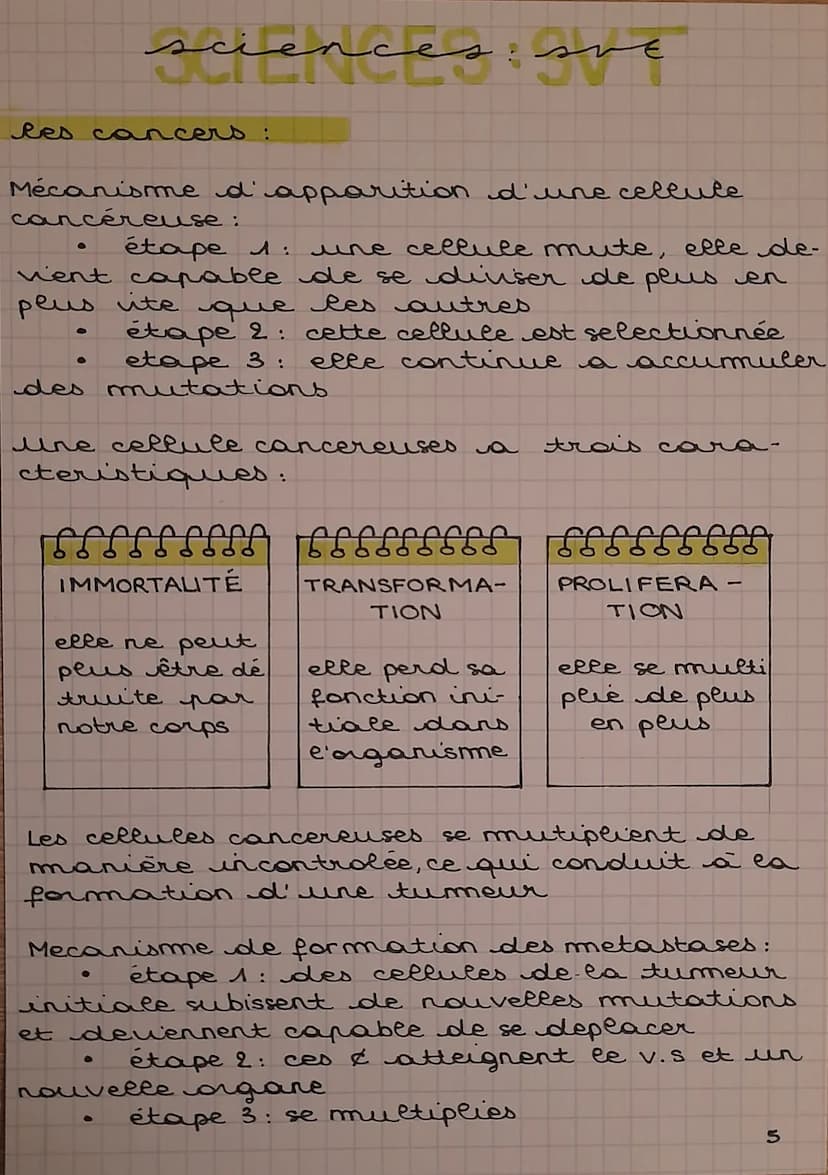 SCIENCES : SVT
sciences : svt
les cancers :
Mécanisme d'apparition d'une cellule
cancéreuse :
• étape 1 : une cellule mute, elle de-
vient capable de se diviser de plus en
plus vite que les autres
• étape 2 : cette cellule est selectionnée
• etape 3 : elle continue a accumuler
des mutations
Une cellule cancereuses a trois cara-
cteristiques :
IMMORTALITÉ
elle ne peut
plus être dé
truite par
notre corps
TRANSFORMA-
TION
elle perd sa
fonction ini-
tiale dans
l'organisme
PROLIFERA-
TION
elle se multi
plie de plus
en plus
Les cellules cancereuses se mutiplient de
manière incontrolée, ce qui conduit à la
formation d'une tumeur
Mecanisme de formation des metastases :
• étape 1 : des cellules de la tumeur
initiale subissent de nouvelles mutations
et deviennent capable de se deplacer
• étape 2 : ces ¢ atteignent le v.s et un
nouvelle organe
• étape 3 : se multiplies
5